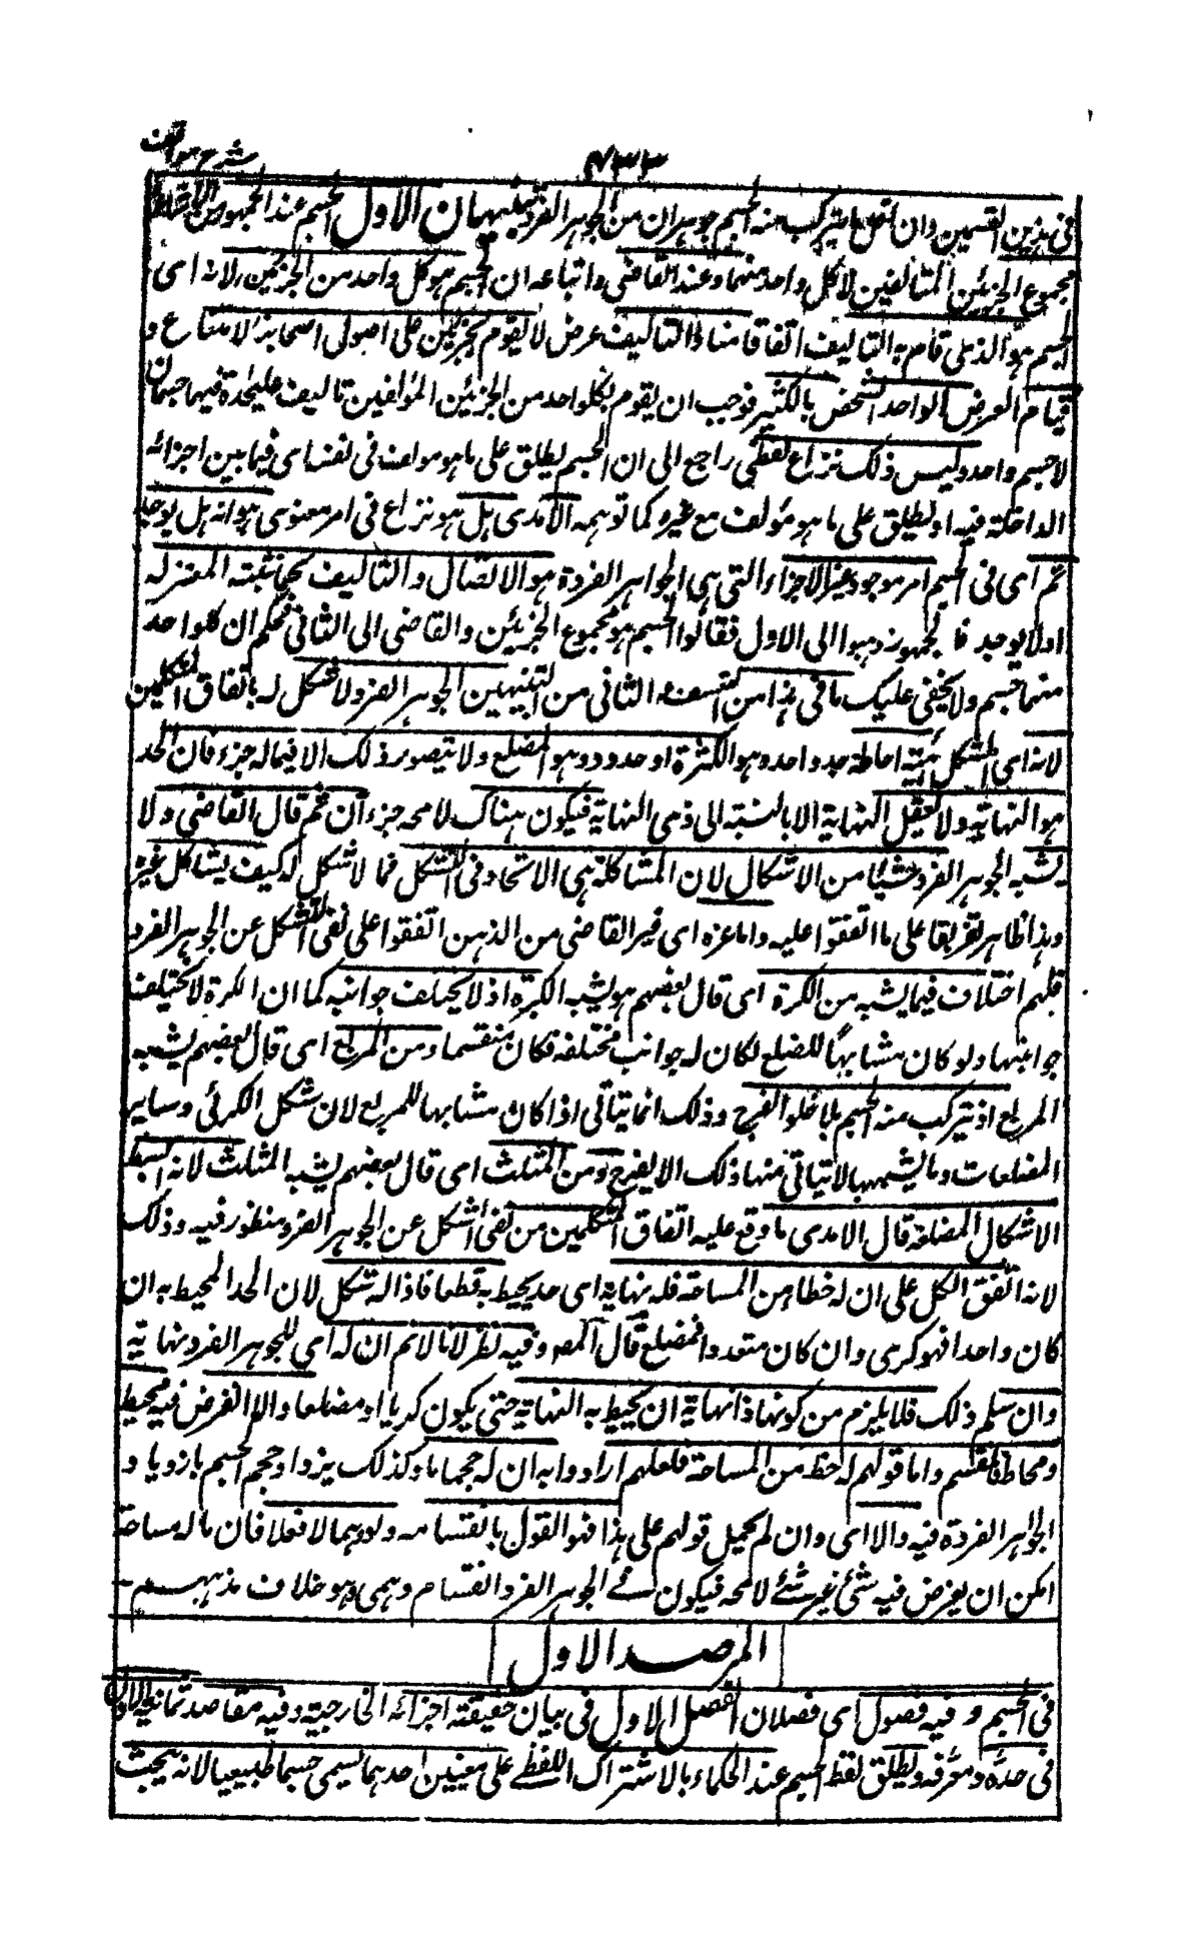 شرح مواقف
۷۳۳
في هذين القسمين وان اقل ما يتركب منه الجسم جوهران من الجواهر الفردة تنبيهان الاول الجسم عند الجمهور من الاشاعرة
مجموع الجزئين المتألفين لا كل واحد منهما وعند القاضي واتباعه ان الجسم هو كل واحد من الجزئين لانه اى
الجسم هو الذى قام به التأليف اتفاقا منا والتأليف عرض لا يقوم بجزئين على اصول اصحابنا لامتناع
قيام العرض الواحد الشخص بالكثير فوجب ان يقوم بكلواحد من الجزئين المؤلفين تأليف عليحدة فهما جسمان
لا جسم واحد وليس ذلك نزاع لفظي راجع الى ان الجسم يطلق على ما هو مولف فى نفسه اى فيما بين اجزائه
الداخلة فيه او يطلق على ما هو مؤلف مع غيره كما توهمه الآمدى بل هو نزاع فى امر معنوى هو انه هل يوجد
ثم اى فى الجسم امر موجود غير الاجزاء التى هى الجواهر الفردة هو الاتصال والتأليف كما يثبته المعتزلة
او لا يوجد فالجمهور ذهبوا الى الاول فقالوا الجسم هو مجموع الجزئين والقاضى الى الثانى فحكم ان كلواحد
منهما جسم ولا يخفى عليك ما فى هذا من التعسف الثانى من التنبيهين الجوهر الفرد لا شكل له باتفاق المتكلمين
لانه اى الشكل هيئة احاطة حد واحد وهو الكرة او حدود وهو المضلع ولا يتصور ذلك الا فيما له جزء فان الحد
هو النهاية ولا تعقل النهاية الا بالنسبة الى ذى النهاية فيكون هناك لا محه جزءان ثم قال القاضى ولا
يشبه الجوهر الفرد شيئا من الاشكال لان المشاكلة هى الاتحاد فى الشكل فما لا شكل له كيف يشاكل غيره
وهذا ظاهر تفريقا على ما اتفقوا عليه واما غيره اى غير القاضى من الذين اتفقوا على نفى الشكل عن الجوهر الفرد
فلهم اختلاف فيما يشبه من الكرة اى قال بعضهم هو يشبه الكرة اذ لا يختلف جوانبه كما ان الكرة لا تختلف
جوانبها ولو كان مشابها للضلع لكان له جوانب مختلفة فكان منقسما ومن المربع اى قال بعضهم يشبه
المربع اذ يتركب منه الجسم بلا خلو الفرج وذلك انما يتأتى اذا كان مشابها للمربع لان شكل الكرئى وساير
المضلعات وما يشبهها لا يتأتى منها ذلك الا بفرج ومن المثلث اى قال بعضهم يشبه المثلث لانه ابسط
الاشكال المضلعة قال الامدى ما وقع عليه اتفاق المتكلمين من نفى الشكل عن الجوهر الفرد منظور فيه وذلك
لانه اتفق الكل على ان له حظا من المساحة فله نهاية اى حد يحيط به قطعا فاذا له شكل لان الحد المحيط به ان
كان واحدا فهو كرى وان كان متعددا فمضلع قال المصه وفيه نظر لانا لا نم ان له اى للجوهر الفرد نهاية
وان سلم ذلك فلا يلزم من كونها ذا نهاية ان يحيط به النهاية حتى يكون كريا او مضلعا والا انفرض فيه محيط
ومحاط فانقسم واما قولهم له حظ من المساحة فلعلهم ارادوا به ان له حجما ما وكذلك يزداد حجم الجسم بازدياد
الجواهر الفردة فيه والا اى وان لم يحمل قولهم على هذا فهو القول بانقسامه ولو وهما لا فعلا فان ما له مساحة
امكن ان يفرض فيه شئ غير شئ لا محه فيكون فى الجوهر الفرد انقسام وهمى وهو خلاف مذهبهم
المرصد الاول
فى الجسم و فيه فصول اى فصلان الفصل الاول فى بيان حقيقته اجزائه الخارجية وفيه مقاصد ثمانية الاول
فى حده ومعرفه ويطلق لفظ الجسم عند الحكماء بالاشتراك اللفظى على معنيين احدهما يسمى جسما طبيعيا لانه يبحث